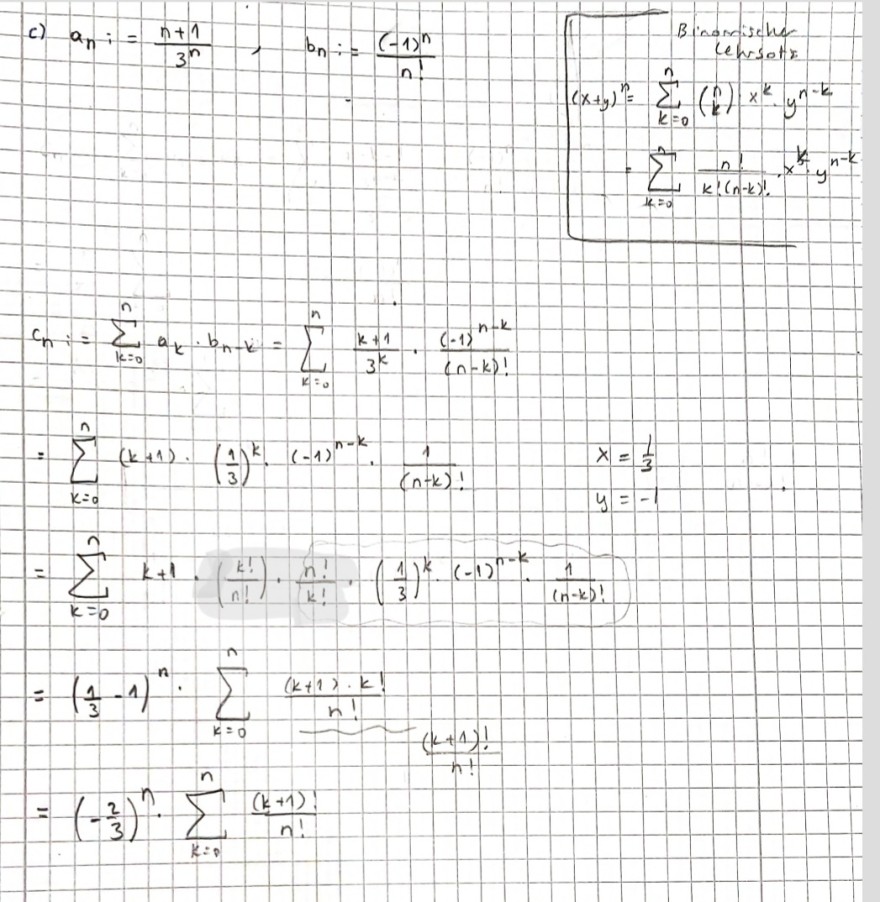 c) a_n := \frac{n+1}{3^n} , b_n := \frac{(-1)^n}{n!}
Binomischer
Lehrsatz
(x+y)^n = \sum_{k=0}^{n} \binom{n}{k} \cdot x^k \cdot y^{n-k}
= \sum_{k=0}^{n} \frac{n!}{k!(n-k)!} \cdot x^k \cdot y^{n-k}
c_n := \sum_{k=0}^{n} a_k \cdot b_{n-k} = \sum_{k=0}^{n} \frac{k+1}{3^k} \cdot \frac{(-1)^{n-k}}{(n-k)!}
= \sum_{k=0}^{n} (k+1) \cdot (\frac{1}{3})^k \cdot (-1)^{n-k} \cdot \frac{1}{(n-k)!}
x = \frac{1}{3}
y = -1
= \sum_{k=0}^{n} k+1 \cdot (\frac{k!}{n!}) \cdot \frac{n!}{k!} \cdot (\frac{1}{3})^k \cdot (-1)^{n-k} \cdot \frac{1}{(n-k)!}
= (\frac{1}{3} - 1)^n \cdot \sum_{k=0}^{n} \frac{(k+1) \cdot k!}{n!}
\frac{(k+1)!}{n!}
= (-\frac{2}{3})^n \cdot \sum_{k=0}^{n} \frac{(k+1)!}{n!}